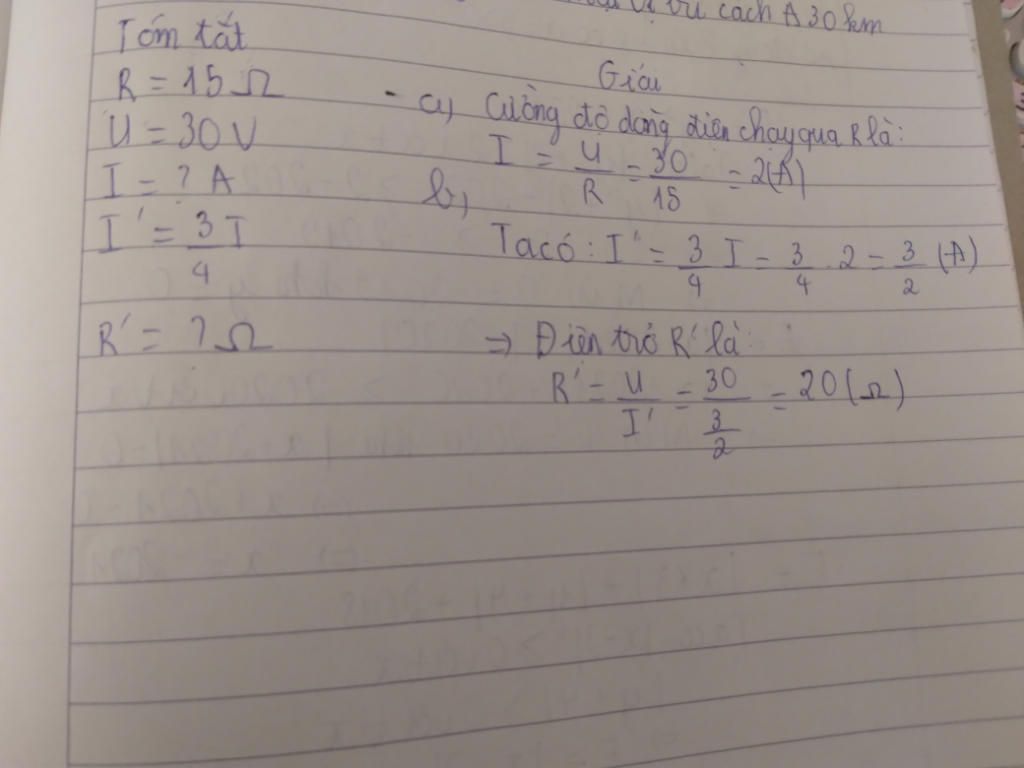 vị trí cách A 30 km
Tóm tắt
R = 15 Ω
U = 30 V
I = ? A
I' = 3/4 I
R' = ? Ω
Giải
- a, Cường độ dòng điện chạy qua R là:
I = U/R = 30/15 = 2(A)
b,
Ta có: I' = 3/4 I = 3/4 . 2 = 3/2 (A)
=> Điện trở R' là:
R' = U/I' = 30/(3/2) = 20 (Ω)